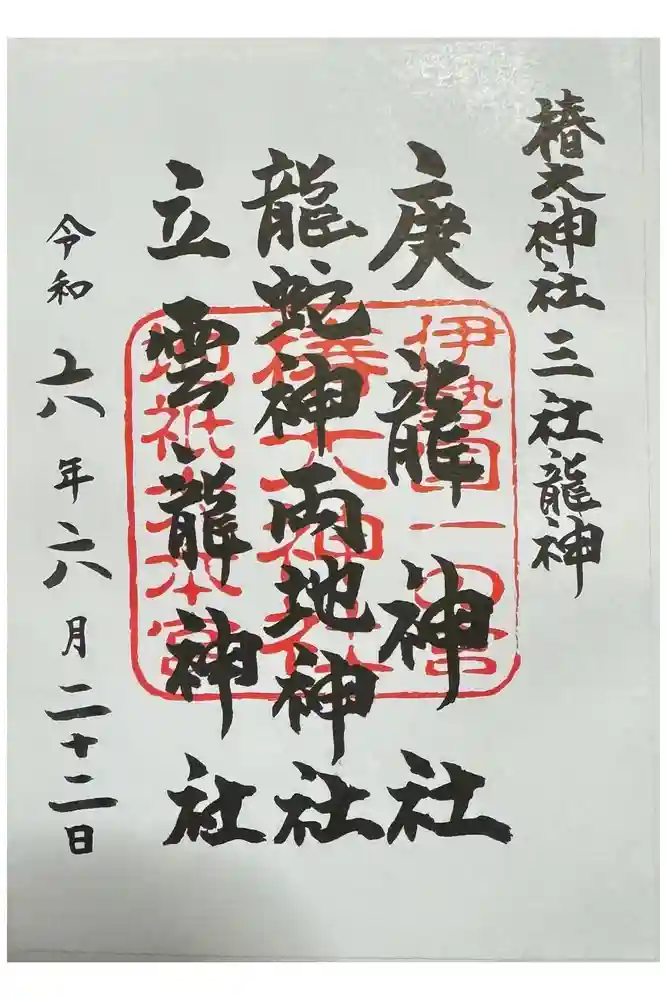 椿大神社三社龍神
庚龍神社
龍蛇神両地神社
立雲龍神社
令和六年六月二十二日
伊勢国一の宮
椿大神社
地祇大本宮